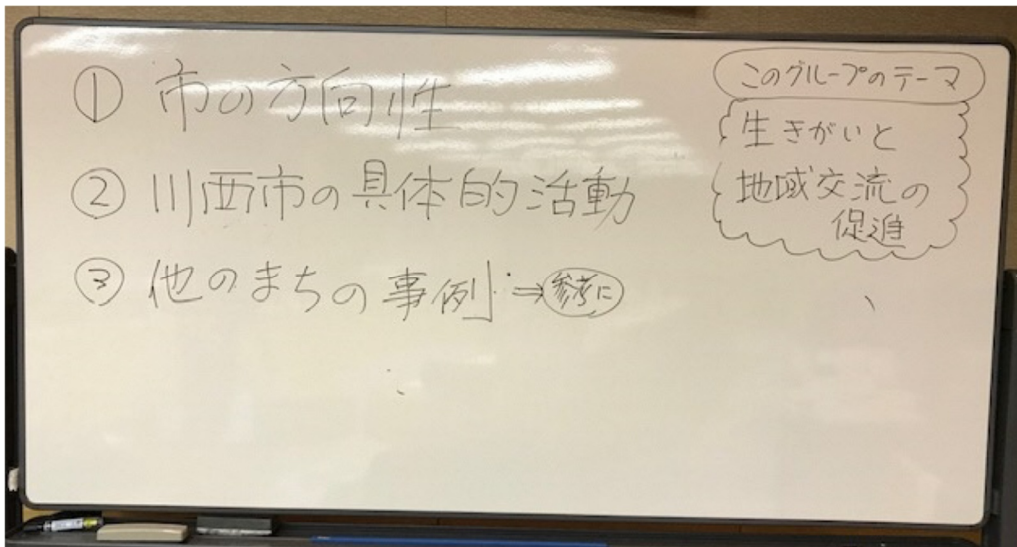 ① 市の方向性
② 川西市の具体的活動
③ 他のまちの事例 ⇒ 参考に
このグループのテーマ
生きがいと
地域交流の
促進